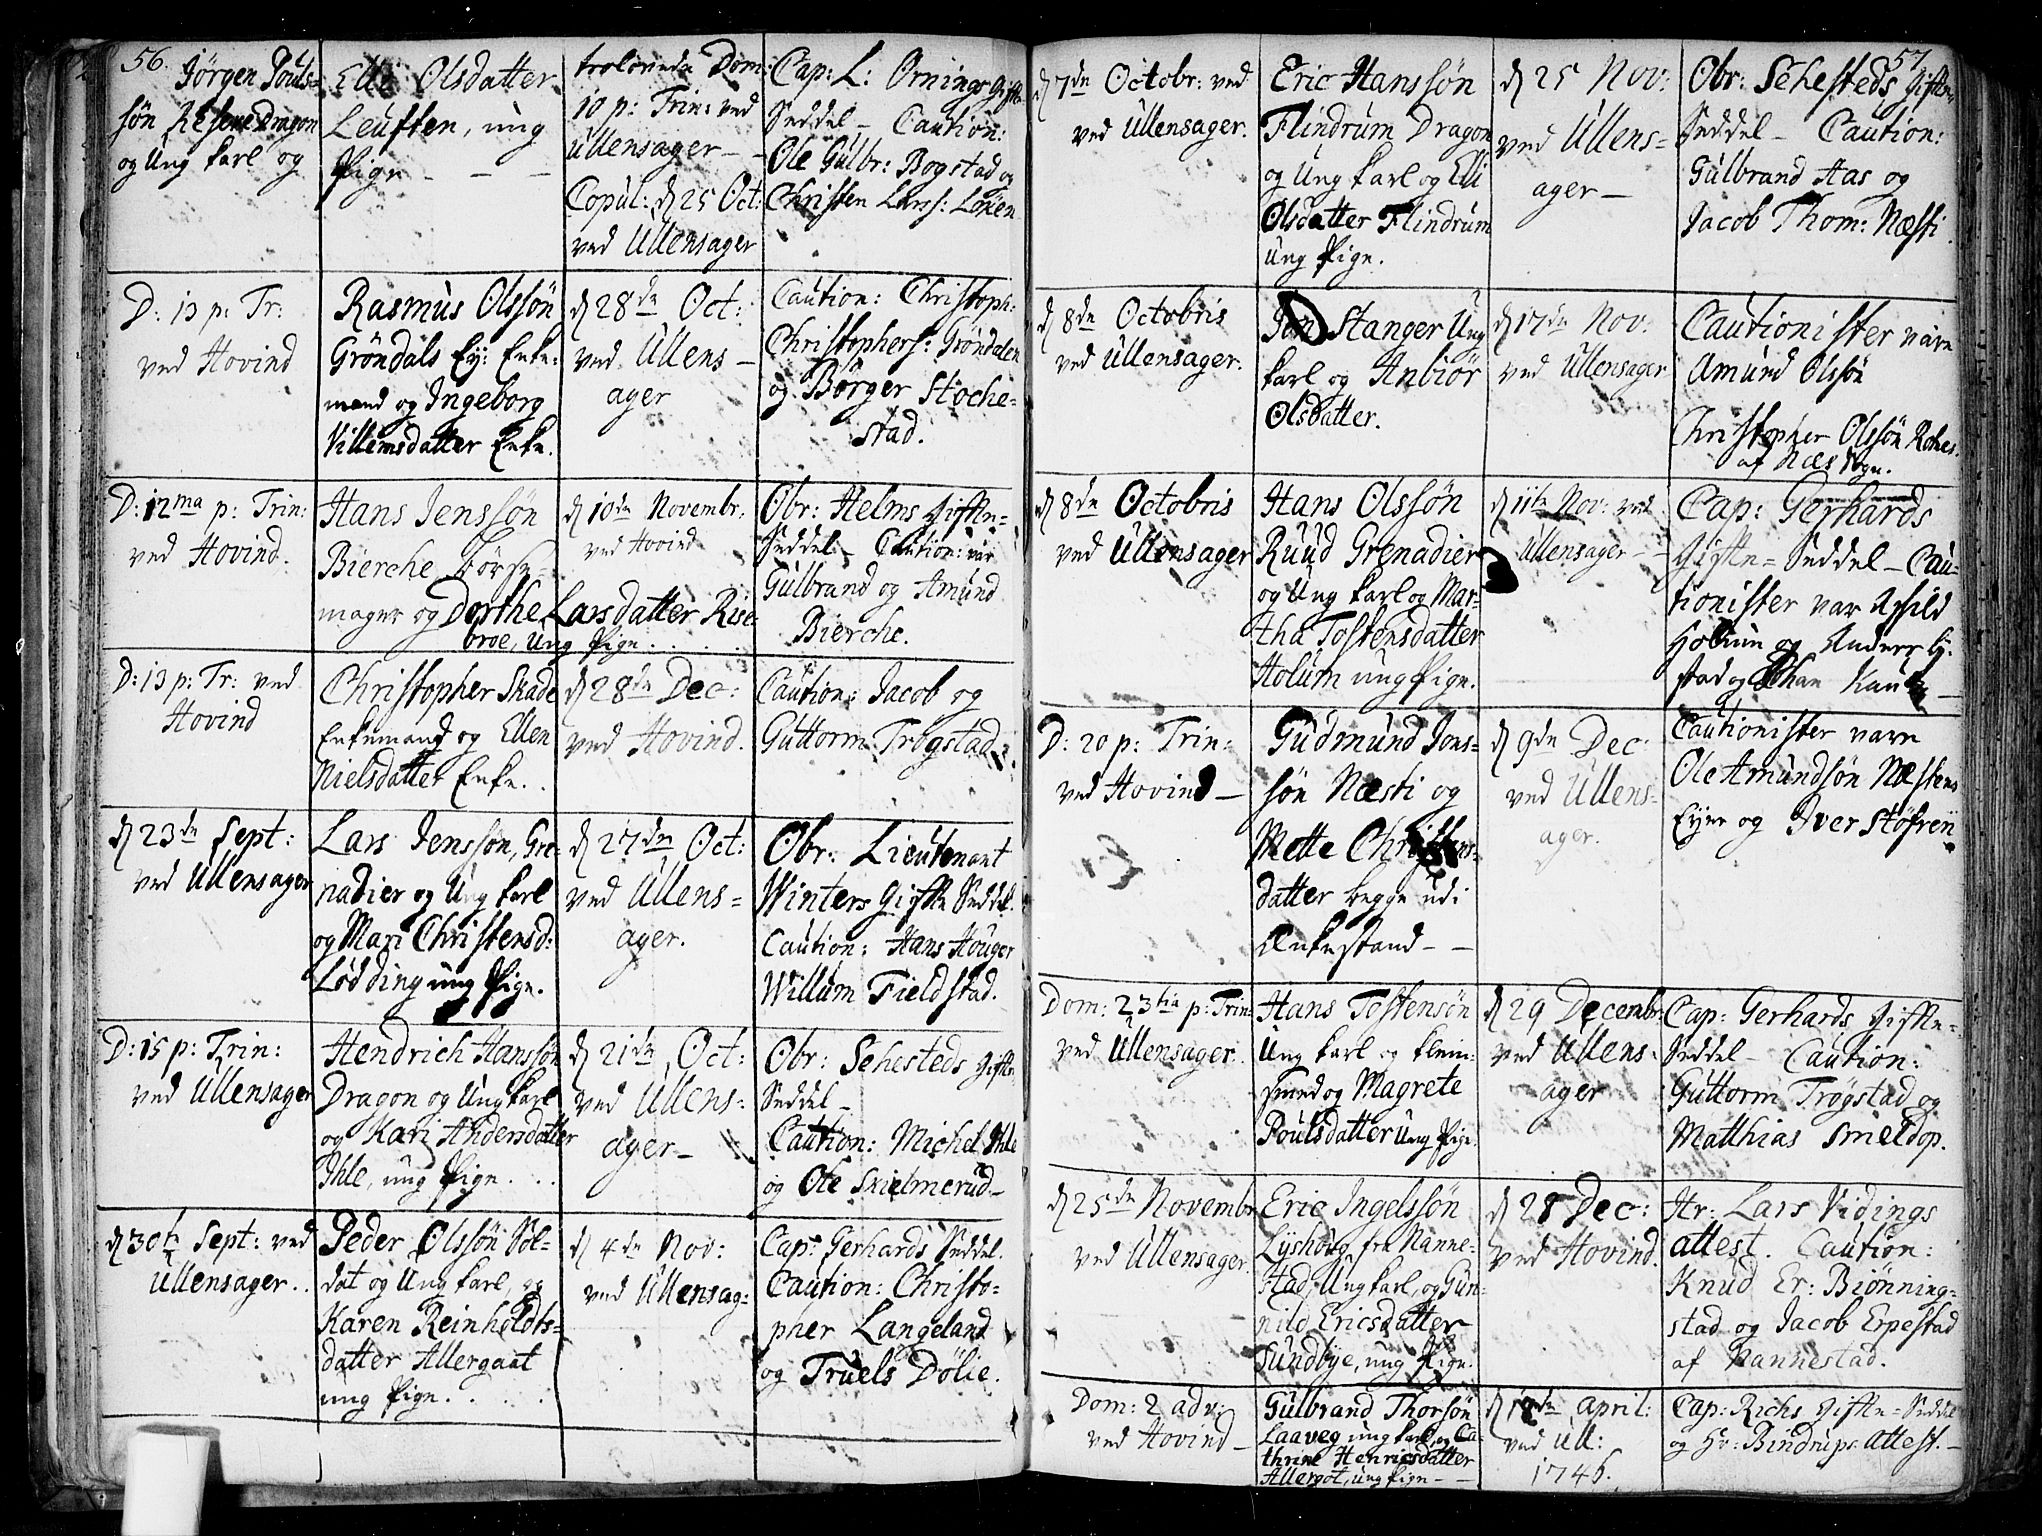 56.
Jörgen Pouls-
sön Reserve Dragon
og Ung karl og
Elli Olsdatter
Leuften, ung
Pige - - -
trolovede Dom:
10 p: Trin: ved
Ullensager - -
Copul: d 25 Oct:
ved Ullensager
Cap: L: Ornings gifte
Seddel - Caution:
Ole Gulbr: Bogstad og
Christen Lars: Löken
D: 13 p: Tr:
ved Hovind
Rasmus Olssön
Gröndals Ey: Enke-
mand og Ingeborg
Villemsdatter Enke.
d 28de Oct:
ved Ullens-
ager
Caution: Christoph:
Christophers: Gröndalen
og Börger Stoche-
stad.
D: 12ma p: Trin:
ved Hovind.
Hans Jenssön
Bierche Börse-
mager og Dorthe Larsdatter Rise-
broe, Ung Pige . . . .
d 10de Novembr.
ved Hovind
Obr: Helms gifte-
Seddel - Caution: var
Gulbrand og Amund
Bierche.
D: 13 p: Tr: ved
Hovind
Christopher Skade
Enkemand og Ellen
Nielsdatter Enke. .
d 28de Dec:
ved Hovind.
Caution: Jacob og
Guttorm Trögstad.
d 23de Sept:
ved Ullensager
Lars Jenssön, Gre-
nadier og Ung karl
og Mari Christensd:
Lödding ung Pige.
d 27de Oct:
ved Ullens-
ager.
Obr: Lieutenant
Winters Gifte Seddel.
Caution: Hans Houger
Willum Fieldstad.
D: 15 p: Trin:
ved Ullensager
Hendrich Hanssön
Dragon og Ung karl
og Kari Andersdatter
Ihle, ung Pige . . .
d 21de Oct:
ved Ullens-
ager -
Obr: Sehesteds gifte
Seddel -
Caution: Michel Ihle
og Ole Skielmerud -
d 30te Sept: ved
Ullensager . .
Peder Olssön Sol-
dat og Ung karl, og
Karen Reinholdts-
datter Allergaat
ung Pige . . . .
d 4de Nov:
ved Ullensag:
Cap: Gerhards Seddel.
Caution: Christo-
pher Langeland
og Truels Dölie.
57.
d 7de Octobr: ved
ved Ullensager.
Eric Hanssön
Flindrum Dragon
og Ung karl og Elli
Olsdatter Flindrum
Ung Pige.
d 25 Nov:
ved Ullens-
ager -
Obr: Sehesteds gifte-
Seddel - Caution:
Gulbrand Aas og
Jacob Thom: Næsti.
d 8de Octobris
ved Ullensager.
Jon Stanger Ung
karl og Anbiör
Olsdatter.
d 17de Nov:
ved Ullensager
Cautionister vare
Amund Olssön
Christopher Olssön
af Næs Sogn.
d 8de Octobris
ved Ullensager
Hans Olssön
Ruud Grenadier
og Ung karl og Mar-
tha Tostensdatter
Holum ung Pige.
d 11te Nov: ved
Ullensager -
Cap: Gerhards
Gifte-Seddel - Cau-
tionister var
Holum og Anders
stad og Johan
D: 20 p: Trin:
ved Hovind -
Gudmund Jons-
sön Næsti og
Mette Christens-
datter begge udi
Enkestand - -
d 9de Dec:
ved Ullens-
ager.
Cautionister vare
Ole Amundsön Næstens
Eyer og Iver Stöfren
Dom: 23tia p: Trin:
ved Ullensager.
Hans Tostensön
Ung karl og klein-
smed og Magrete
Poulsdatter Ung Pige.
d 29 Decembr:
ved Ullens-
ager
Cap: Gerhards gifte-
Seddel - Caution:
Guttorm Trögstad og
Matthias Smeldop.
d 25de Novembr
ved Ullensager.
Eric Ingelssön
Lyshoug fra Nanne-
stad, Ung karl, og Gun-
nild Ericsdatter
Sundbye, ung Pige.
d 28 Dec:
ved Hovind.
Hr: Lars Vidings
attest. Caution:
Knud Er: Biönning-
stad og Jacob Erpestad
af Nannestad.
Dom: 2 adv:
ved Hovind -
Gulbrand Thorsön
Laaveg ung karl, og Ca-
thrine Henricsdatter
Allergot, ung Pige - -
d 18de April:
ved Ull:
1746.
Cap: Richs Gifte-Seddel
og Hr: Bindrups Attest. -